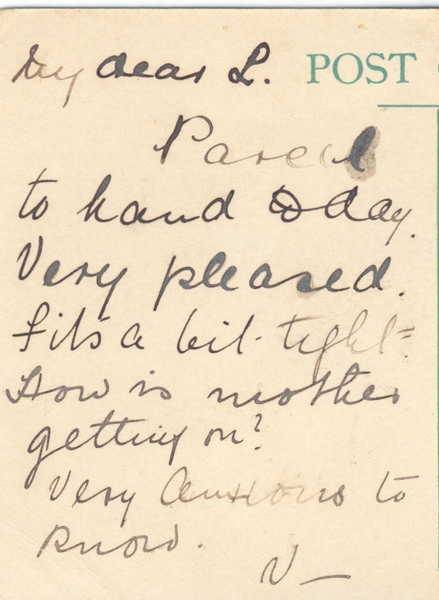 My dear L.
POST
Parcel
to hand to day.
Very pleased.
Fits a bit tight.
How is mother
getting on?
Very Anxious to
know.
V—